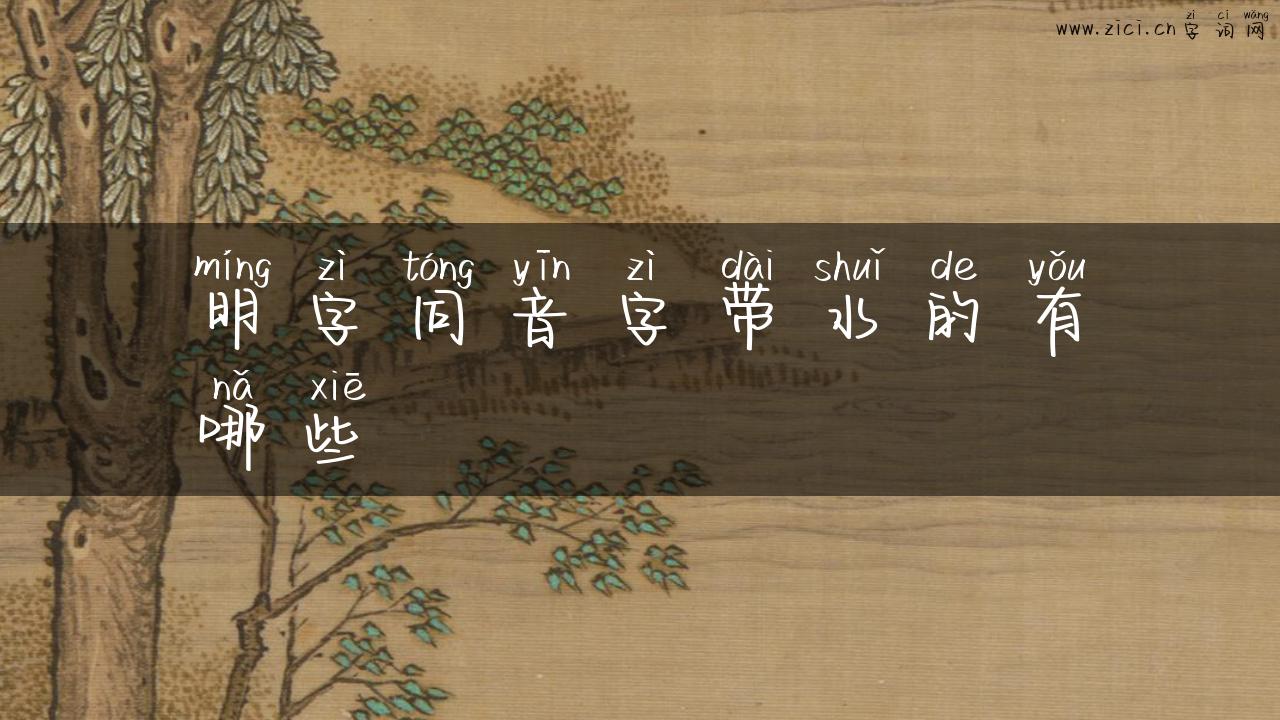 zì cí wǎng
www.zici.cn 字词网
míng zì tóng yīn zì dài shuǐ de yǒu
明字同音字带水的有
nǎ xiē
哪些